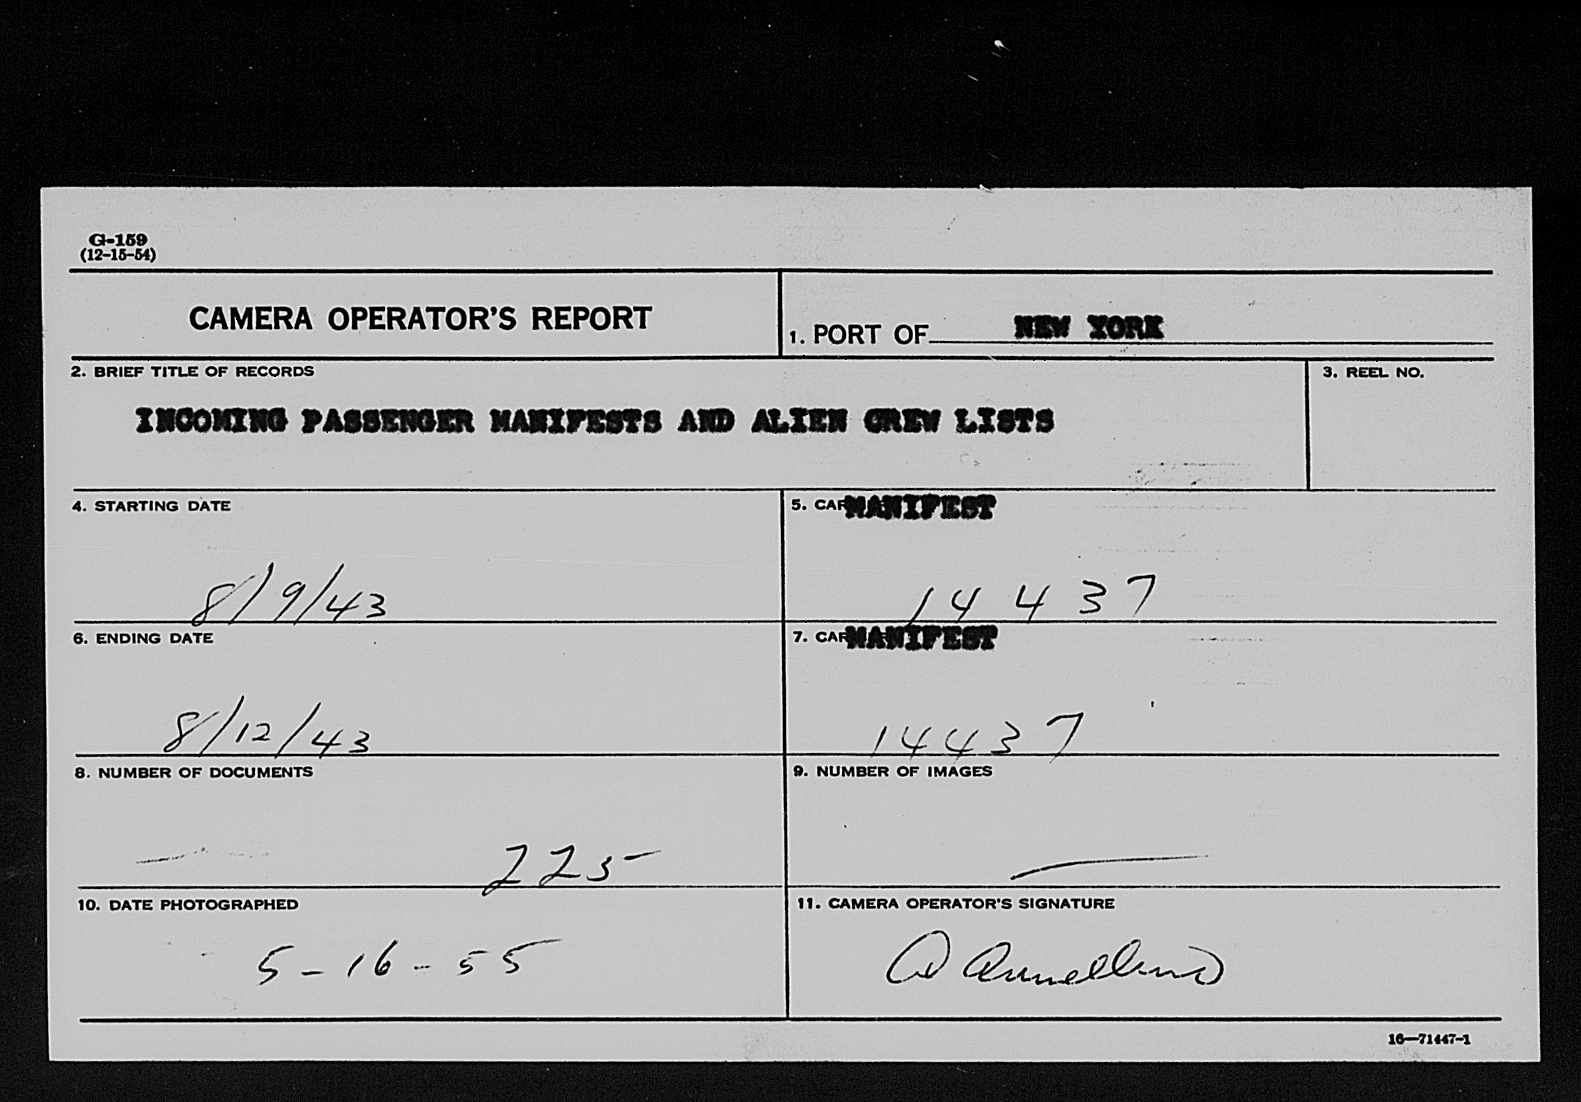 G-159
(12-15-54)
CAMERA OPERATOR'S REPORT
1. PORT OF NEW YORK
2. BRIEF TITLE OF RECORDS
3. REEL NO.
INCOMING PASSENGER MANIFESTS AND ALIEN CREW LISTS
4. STARTING DATE
5. CAR MANIFEST
8/9/43
14437
6. ENDING DATE
7. CAR MANIFEST
8/12/43
14437
8. NUMBER OF DOCUMENTS
9. NUMBER OF IMAGES
225
10. DATE PHOTOGRAPHED
11. CAMERA OPERATOR'S SIGNATURE
5-16-55
16—71447-1